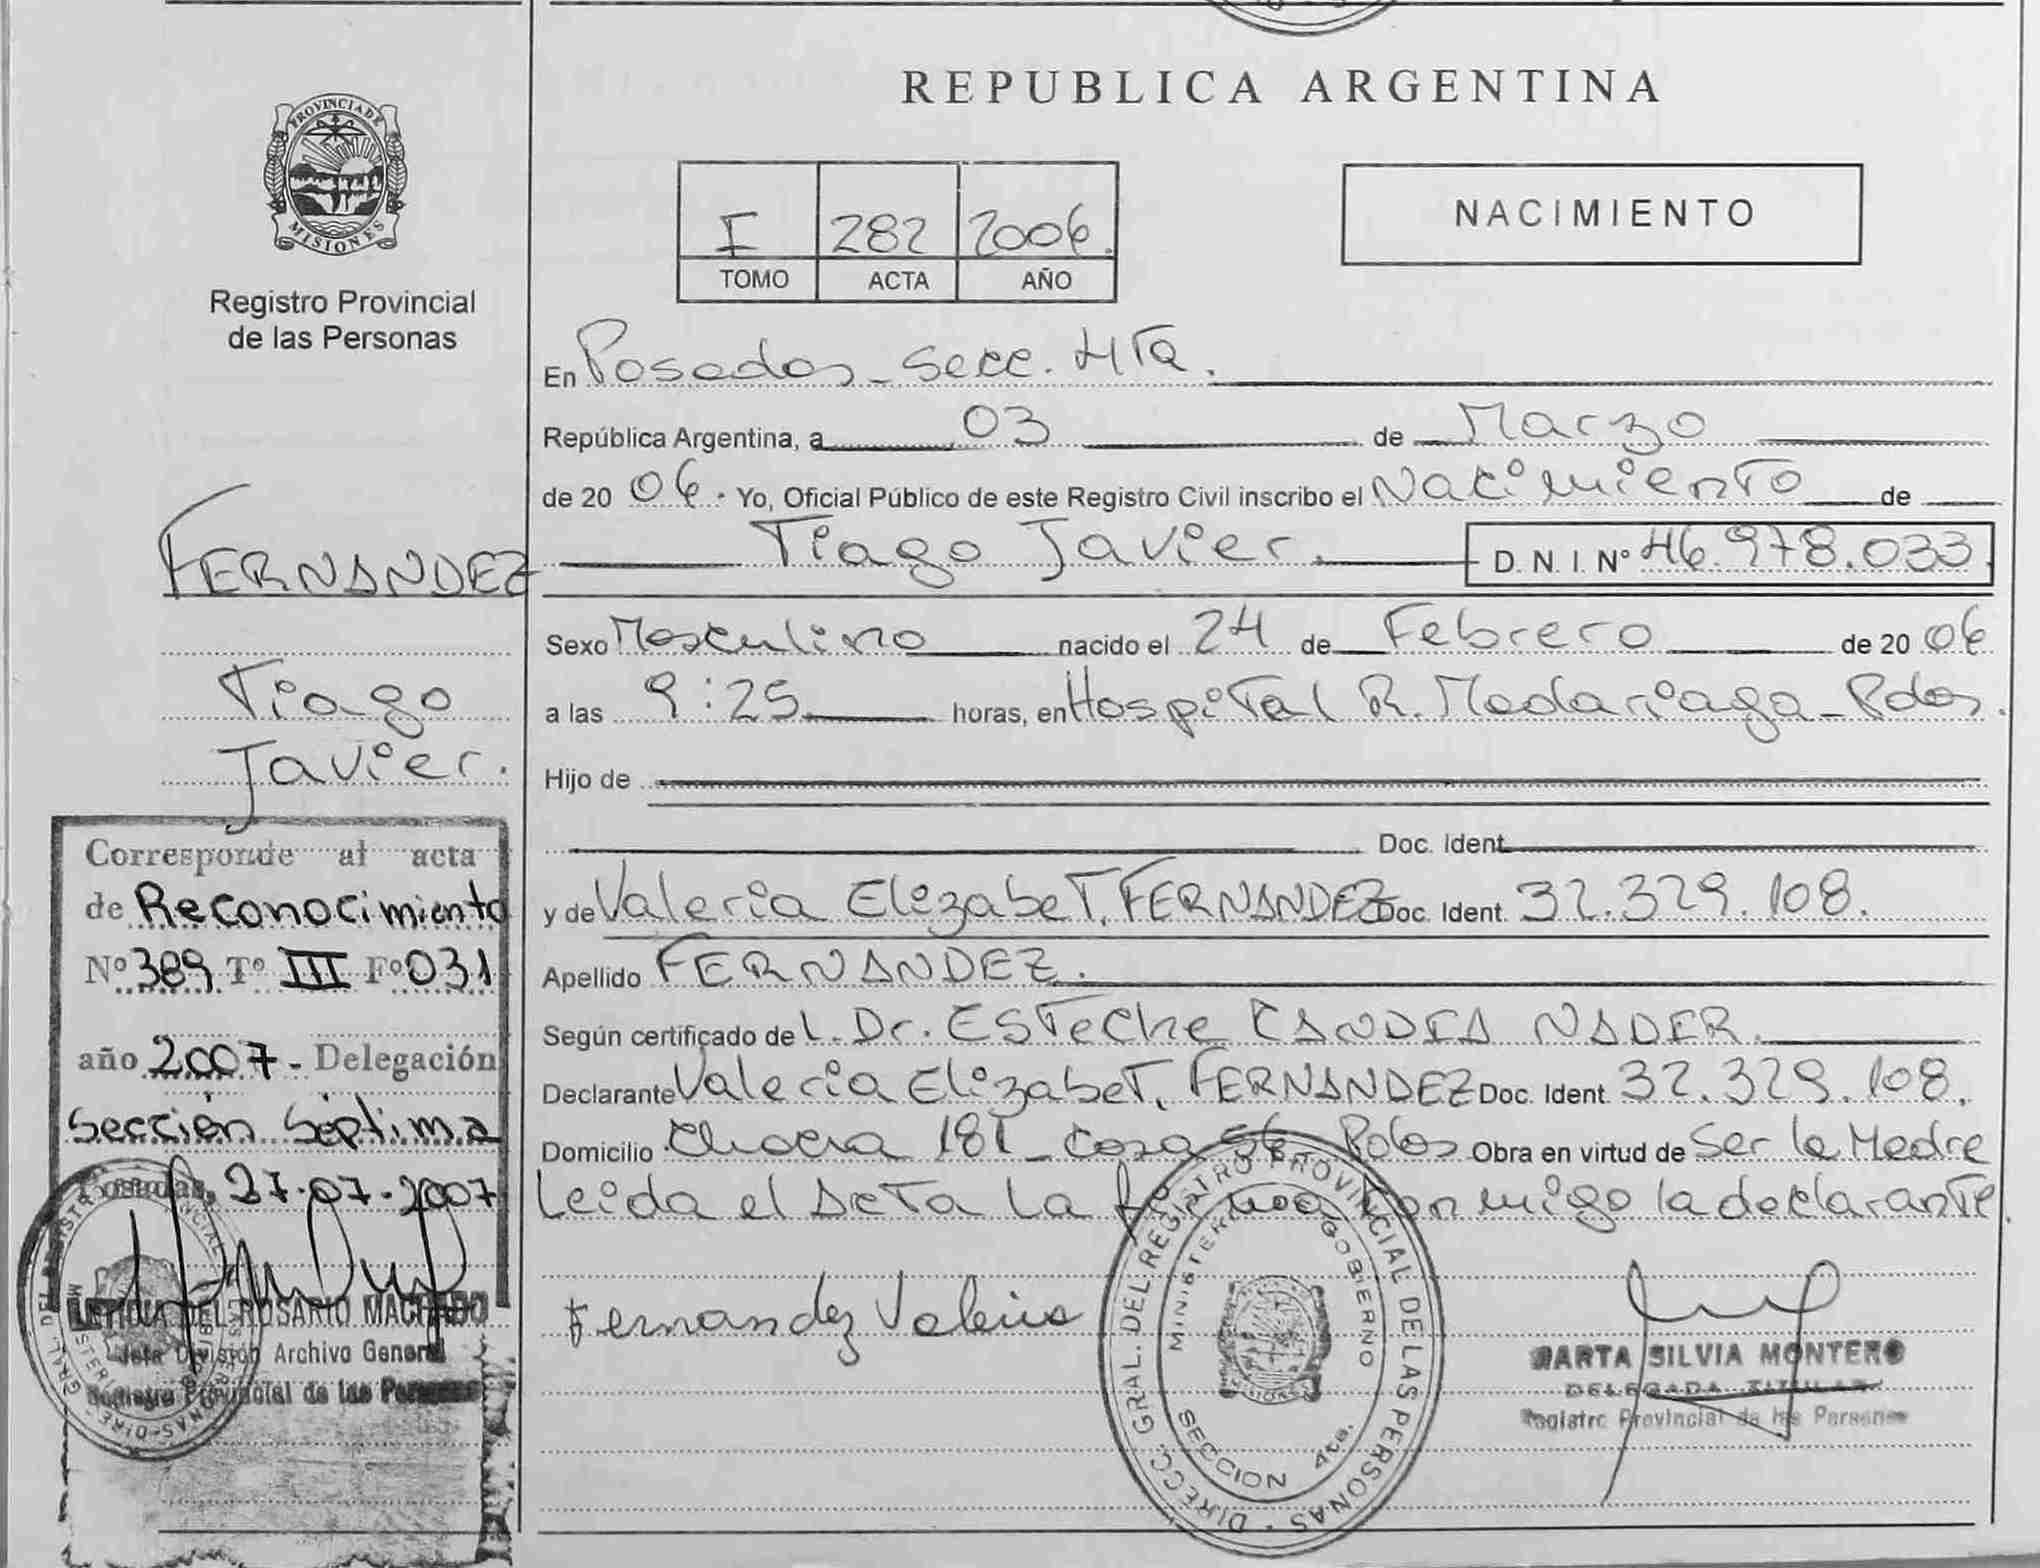 REPUBLICA ARGENTINA
PROVINCIA DE
MISIONES
Registro Provincial
de las Personas
I 282 2006.
TOMO ACTA AÑO
NACIMIENTO
En Posadas - Secc. 4ta.
República Argentina, a 03 de Marzo
de 2006. Yo, Oficial Público de este Registro Civil inscribo el Nacimiento de
Tiago Javier. D. N. I. Nº 46.978.033
Sexo Masculino nacido el 24 de Febrero de 2006
a las 9:25 horas, en Hospital R. Madariaga - Pdas.
Hijo de
Doc. Ident.
y de Valeria Elizabet, FERNANDEZ Doc. Ident. 32.329.108.
Apellido FERNANDEZ.
Según certificado de l. Dr. ESTeche CANDIA NADER.
Declarante Valeria Elizabet, FERNANDEZ Doc. Ident. 32.329.108.
Domicilio 181 - Casa 56 Pdas Obra en virtud de Ser la Madre
Leida el Acta La firma conmigo la declarante.
Fernandez Valeria
MARTA SILVIA MONTERO
DELEGADA TITULAR
Registro Provincial de las Personas
DIRECC. GRAL. DEL REGISTRO PROVINCIAL DE LAS PERSONAS
MINISTERIO GOBIERNO
MISIONES
SECCION 4ta.
FERNANDEZ
Tiago
Javier.
Corresponde al acta
de Reconocimiento
Nº 389 Tº III Fº 031
año 2007 - Delegación
Sección Séptima
Posadas, 27-07-2007
LETICIA DEL ROSARIO MACHADO
Jefa División Archivo General
Registro Provincial de las Personas